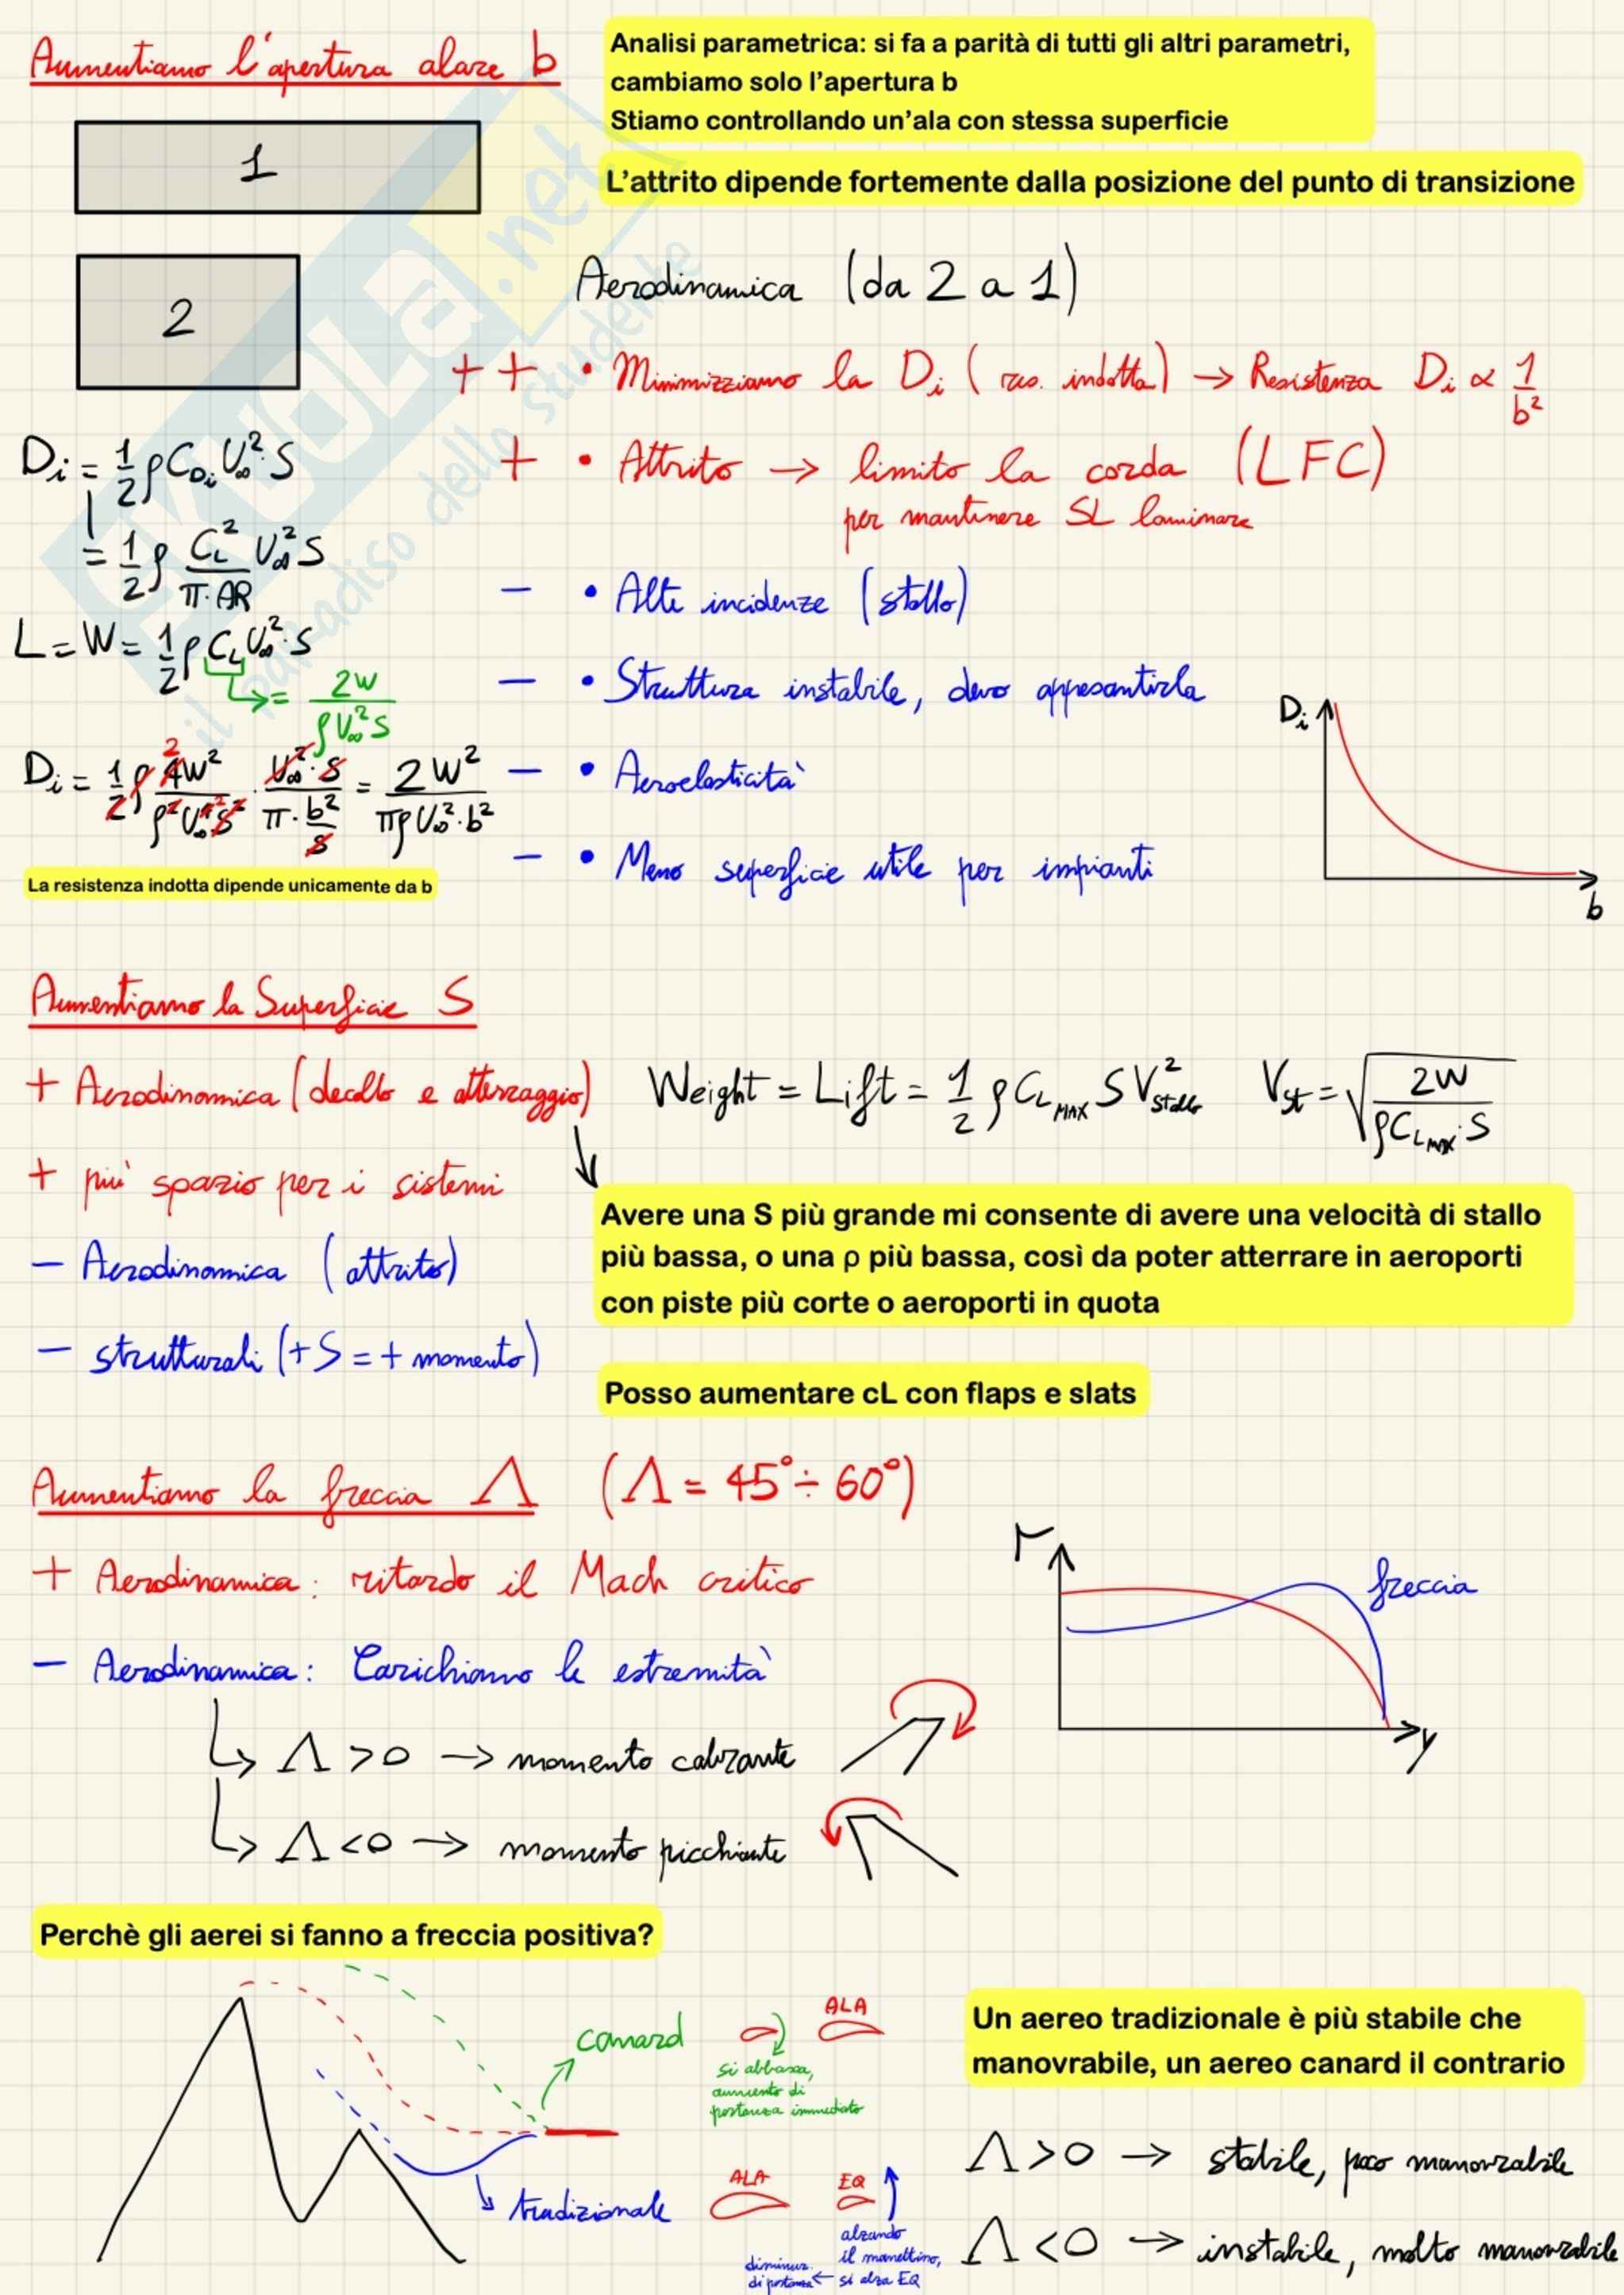 Aumentiamo l'apertura alare b
Analisi parametrica: si fa a parità di tutti gli altri parametri,
cambiamo solo l'apertura b
Stiamo controllando un'ala con stessa superficie
L'attrito dipende fortemente dalla posizione del punto di transizione
1
2
Aerodinamica (da 2 a 1)
++ • Minimizziamo la Di (res. indotta) → Resistenza Di ∝ 1/b²
+ • Attrito → limito la corda (LFC)
per mantinere SL laminare
− • Alte incidenze (stallo)
− • Struttura instabile, devo appesantirla
− • Aeroelasticità
− • Meno superficie utile per impianti
Di = 1/2 ρ C_Di U∞² · S
= 1/2 ρ C_L²/(π · AR) U∞² S
L = W = 1/2 ρ C_L U∞² · S
↳ = 2W/(ρ U∞² S)
Di = 1/2 ρ 4W²/(ρ² U∞⁴ S²) · U∞² · S/(π · b²/S) = 2W²/(π ρ U∞² · b²)
2
La resistenza indotta dipende unicamente da b
Di
b
Aumentiamo la Superficie S
+ Aerodinamica (decollo e atterraggio)
Weight = Lift = 1/2 ρ C_L MAX S V² stallo
V_st = √(2W/(ρ C_L MAX · S))
+ più spazio per i sistemi
− Aerodinamica (attrito)
− strutturali (+S = + momento)
Avere una S più grande mi consente di avere una velocità di stallo
più bassa, o una ρ più bassa, così da poter atterrare in aeroporti
con piste più corte o aeroporti in quota
Posso aumentare cL con flaps e slats
Aumentiamo la freccia Λ (Λ = 45° ÷ 60°)
+ Aerodinamica: ritardo il Mach critico
− Aerodinamica: Carichiamo le estremità
↳ Λ > 0 → momento cabrante
↳ Λ < 0 → momento picchiante
Γ
freccia
y
Perchè gli aerei si fanno a freccia positiva?
canard
ALA
si abbassa,
aumento di
portanza immediato
tradizionale
ALA
EQ
alzando
il manettino,
si alza EQ
diminuz.
di portanza ←
Un aereo tradizionale è più stabile che
manovrabile, un aereo canard il contrario
Λ > 0 → stabile, poco manovrabile
Λ < 0 → instabile, molto manovrabile
SKUOLA.net
il paradiso dello studente